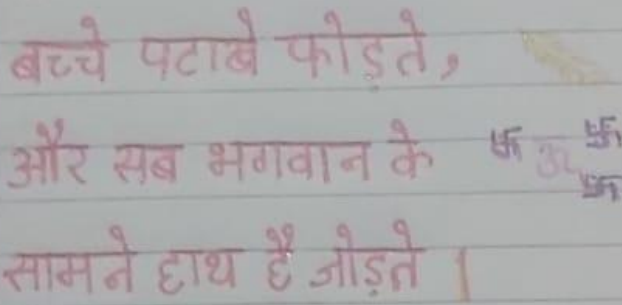 बच्चे पटाखे फोड़ते,
और सब भगवान के 卐 ॐ 卐
卐
सामने हाथ है जोड़ते |